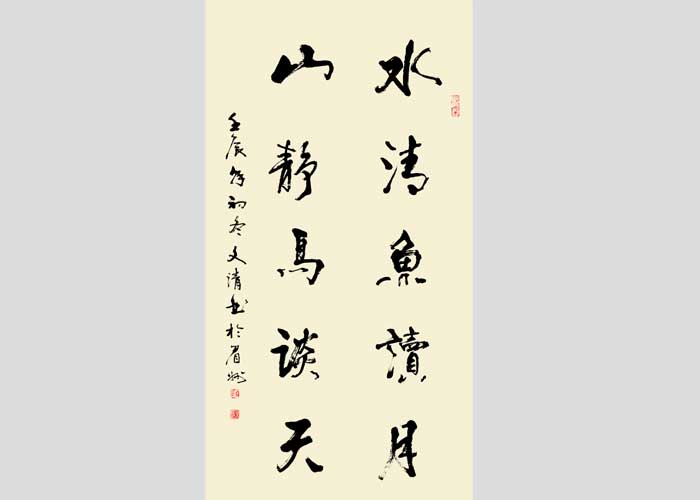 水清魚讀月
山靜鳥談天
壬辰年初冬文清书於眉州